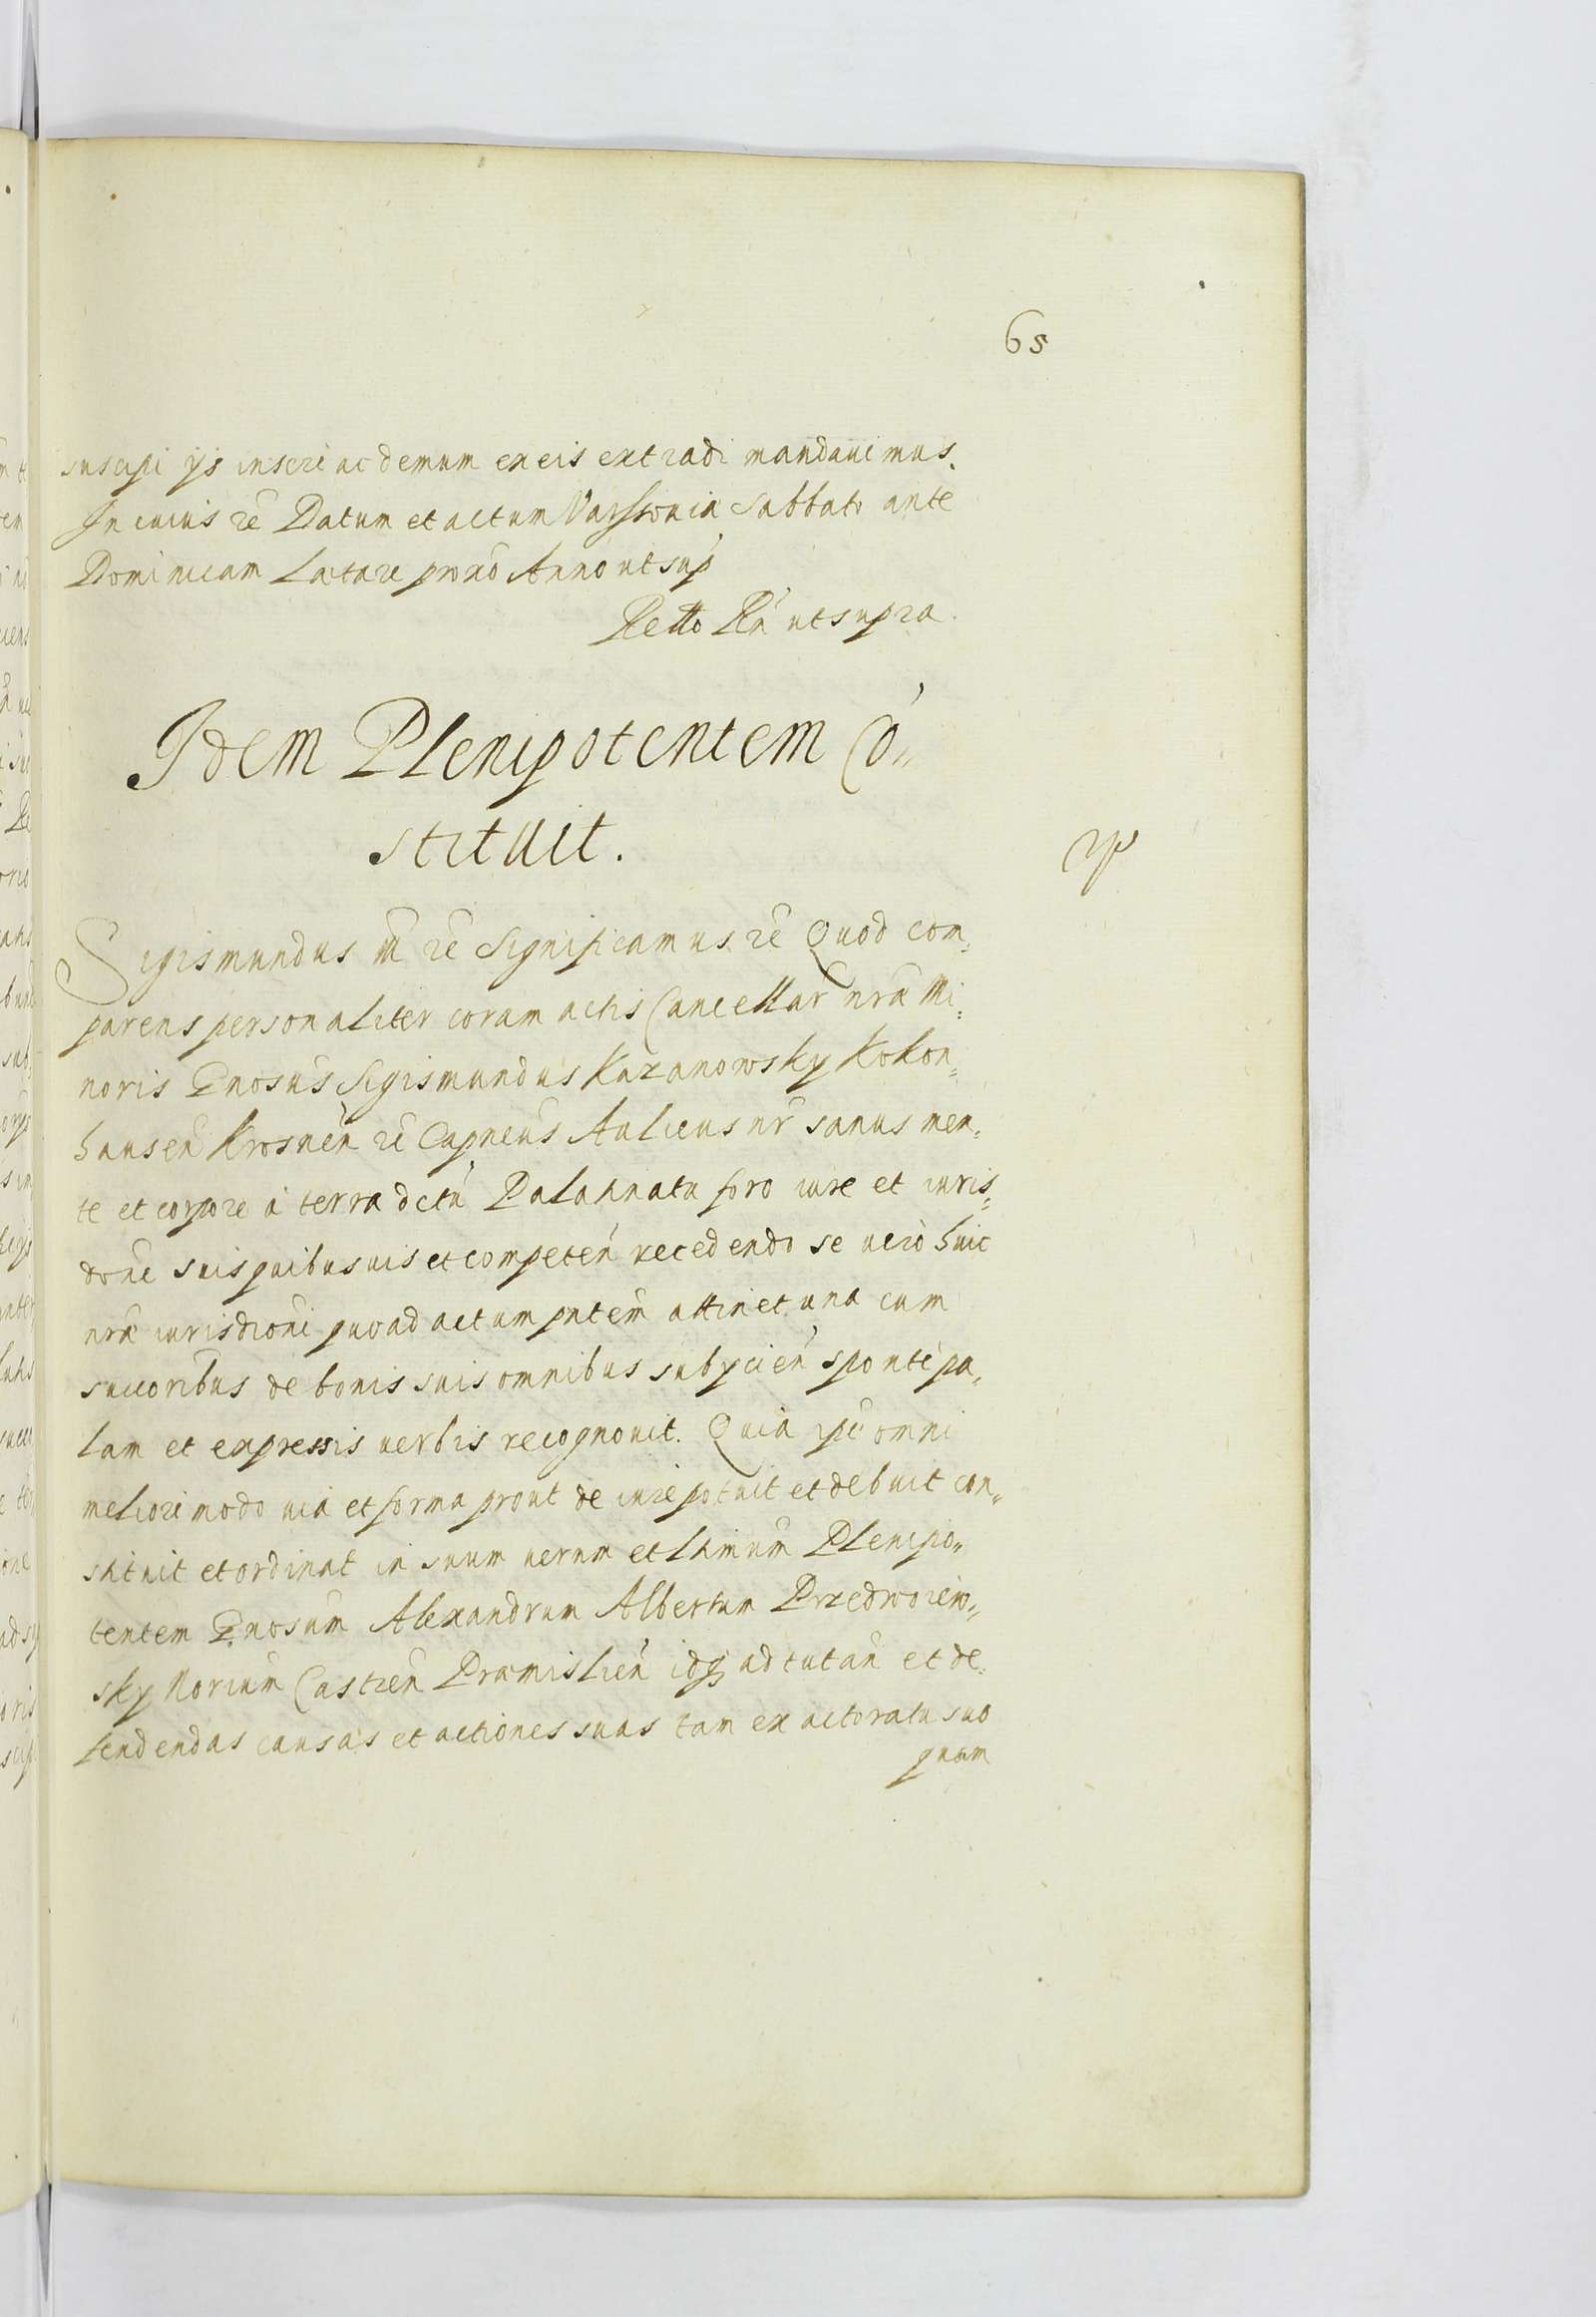 65
suscipi ijs inscri ac demum ex eis extradi mandauimus.
In cuius rē Datum et actum Varssouiæ Sabbato ante
Dominicam Lætare proxō Anno ut sup
Rētto Rń ut supra.
Idem Plenipotentem Có„
stituit.
Sigismundus III rē Significamus rē Quod com„
parens personaliter coram actis Cancellar nrã Mi„
noris Gnosus Sigismundus Kazanowsky Kokon„
hausen̄ Krosnen̄ rē Capneus Aulicus nr̄ sanus men„
te et corpore à terra dctń Palatinatu foro iure et iuris„
done suis quibusuis et competeń recedendo se uerò huic
nrã iurisdioni quoad actum pntem attinet una cum
succoribus de bonis suis omnibus subijcień sponte pa„
lam et expressis uerbis recognouit. Quia ipē omni
meliori modo uia et forma prout de iure potuit et debuit con„
stituit et ordinat in suum uerum et Ltimum Plenipo„
tentem Gnosum Alexandrum Albertum Przedwoiew„
sky Norium Castren̄ Præmislień idq; ad tutan̄ et de„
fendendas causas et actiones suas tam ex actoratu suo
quam